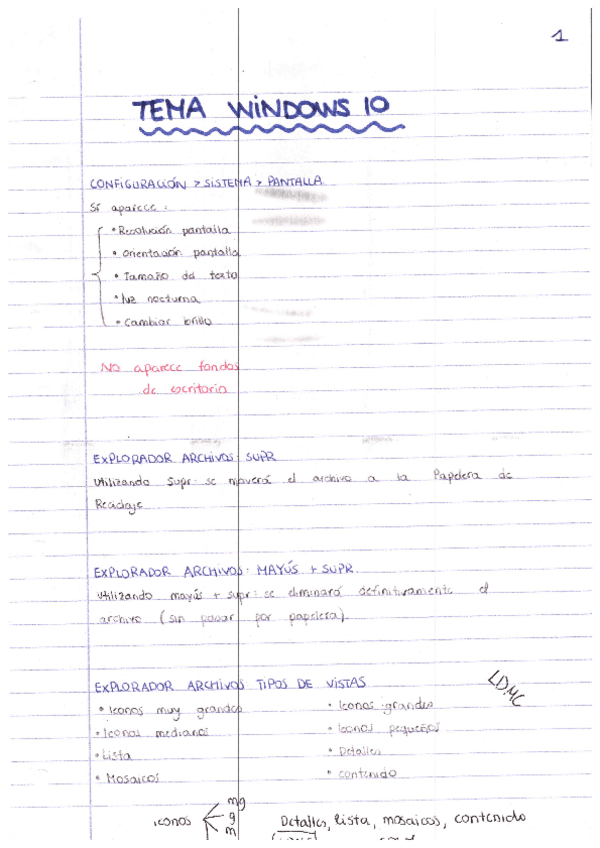 1
TEMA WINDOWS 10
CONFIGURACIÓN > SISTEMA > PANTALLA
Sí aparece:
• Resolución pantalla
• Orientación pantalla
• Tamaño del texto
• luz nocturna
• Cambiar brillo
No aparece fondos
de escritorio
EXPLORADOR ARCHIVOS: SUPR
Utilizando Supr: se moverá el archivo a la Papelera de
Reciclaje
EXPLORADOR ARCHIVOS: MAYÚS + SUPR
Utilizando mayús + supr: se eliminará definitivamente el
archivo (sin pasar por papelera).
EXPLORADOR ARCHIVOS TIPOS DE VISTAS
LDMC
• Iconos muy grandes • Iconos grandes
• Iconos medianos • Iconos pequeños
• Lista • Detalles
• Mosaicos • contenido
mg
iconos g Detalles, lista, mosaicos, contenido
m